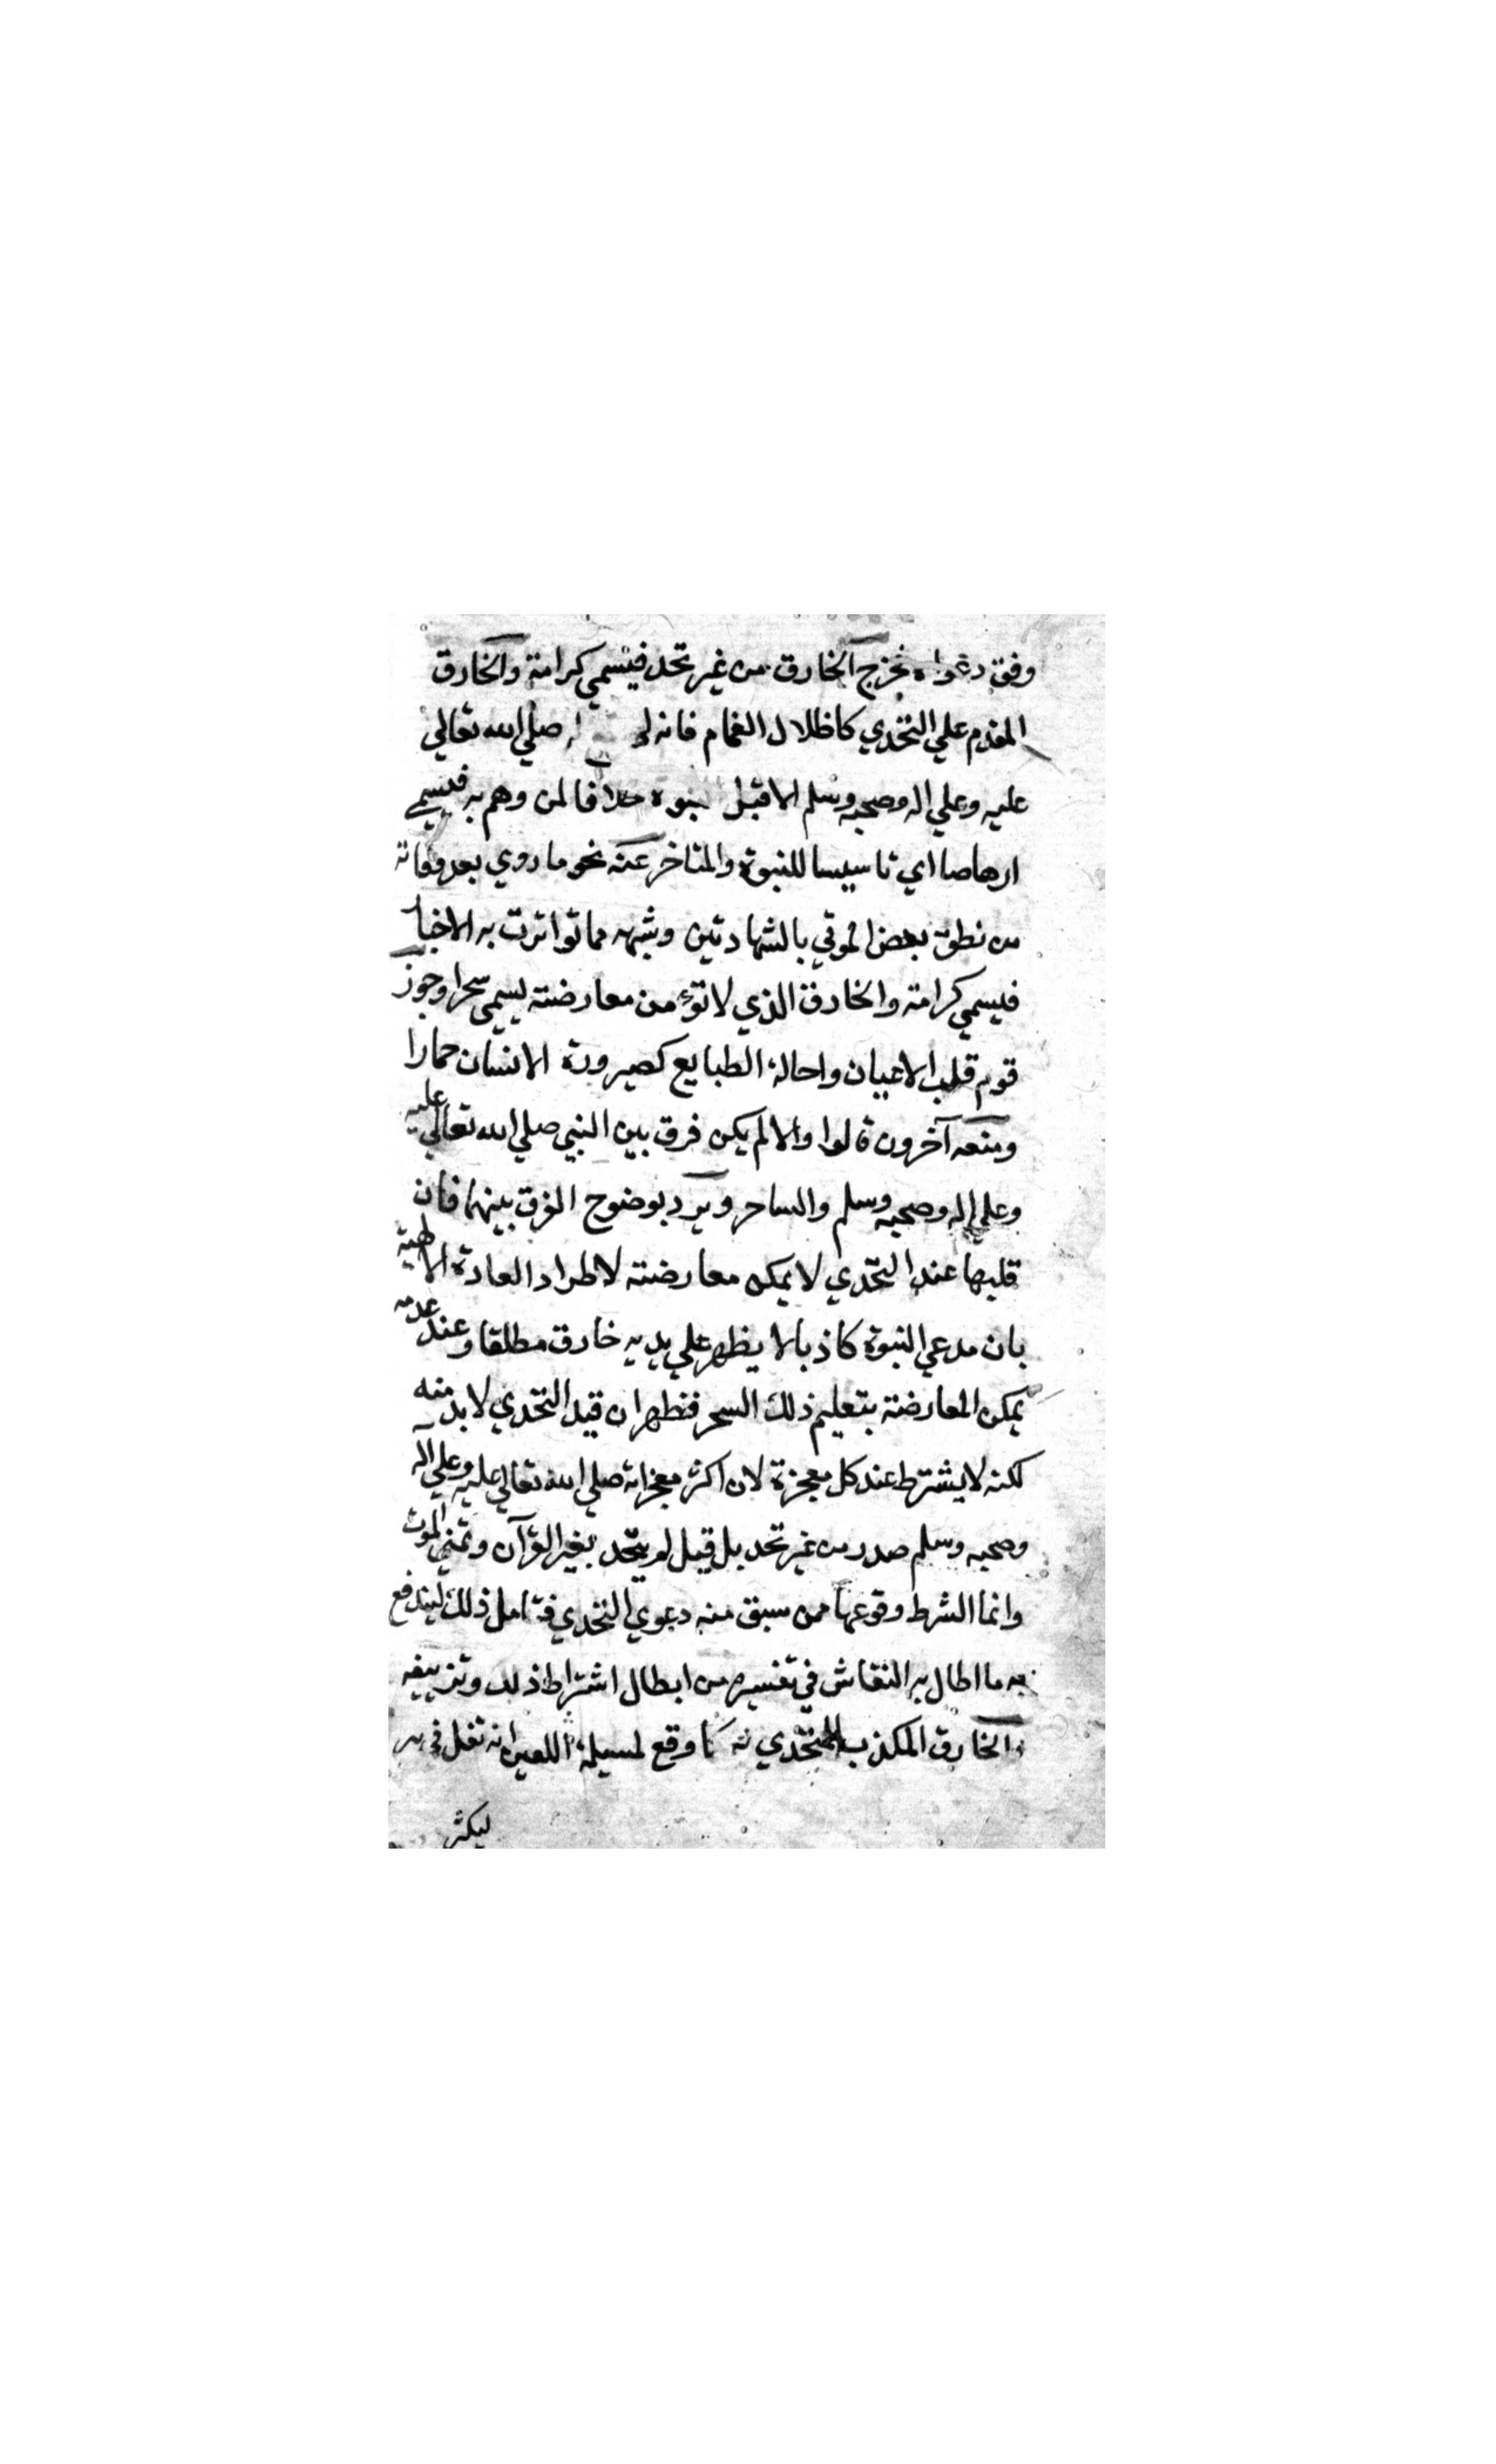 وفق دعواه فخرج الخارق من غير تحد فيسمي كرامة والخارق
المقدم علي التحدي كاظلال الغمام فانه صلي الله تعالي
عليه وعلي اله وصحبه وسلم الا قبل النبوة خلافا لمن وهم به فيسمي
ارهاصا اي تاسيسا للنبوة والمتاخر عنه نحو ما روي بعد وفاته
من نطق بعض الموتي بالشهادتين وشبهه مما تواترت به الاخبار
فيسمي كرامة والخارق الذي لا تؤمن معارضته يسمي سحرا وجوز
قوم قلب الاعيان واحالة الطبايع كصيرورة الانسان حمارا
ومنعه آخرون قالوا والا لم يكن فرق بين النبي صلي الله تعالي عليه
وعلي اله وصحبه وسلم والساحر ويرد بوضوح الفرق بينهما فان
قلبها عند التحدي لا يمكن معارضته لاطراد العادة الالهية
بان مدعي النبوة كاذبا لا يظهر علي يديه خارق مطلقا وعند عدمه
يمكن المعارضة بتعليم ذلك السحر فظهر ان قيد التحدي لا بد منه
لكنه لا يشترط عند كل معجزة لان اكثر معجزاته صلي الله تعالي عليه وعلي آله
وصحبه وسلم صدر من غير تحد بل قيل لم يتحد بغير القرآن وتمني الموت
وانما الشرط وقوعها ممن سبق منه دعوي التحدي فتامل ذلك ليندفع
به ما اطال به النقاش في تفسيره من ابطال اشتراط ذلك وتزييفه
والخارق المكذب للمتحدي به كما وقع لمسيلمة اللعين انه تفل في بير
ليكثر